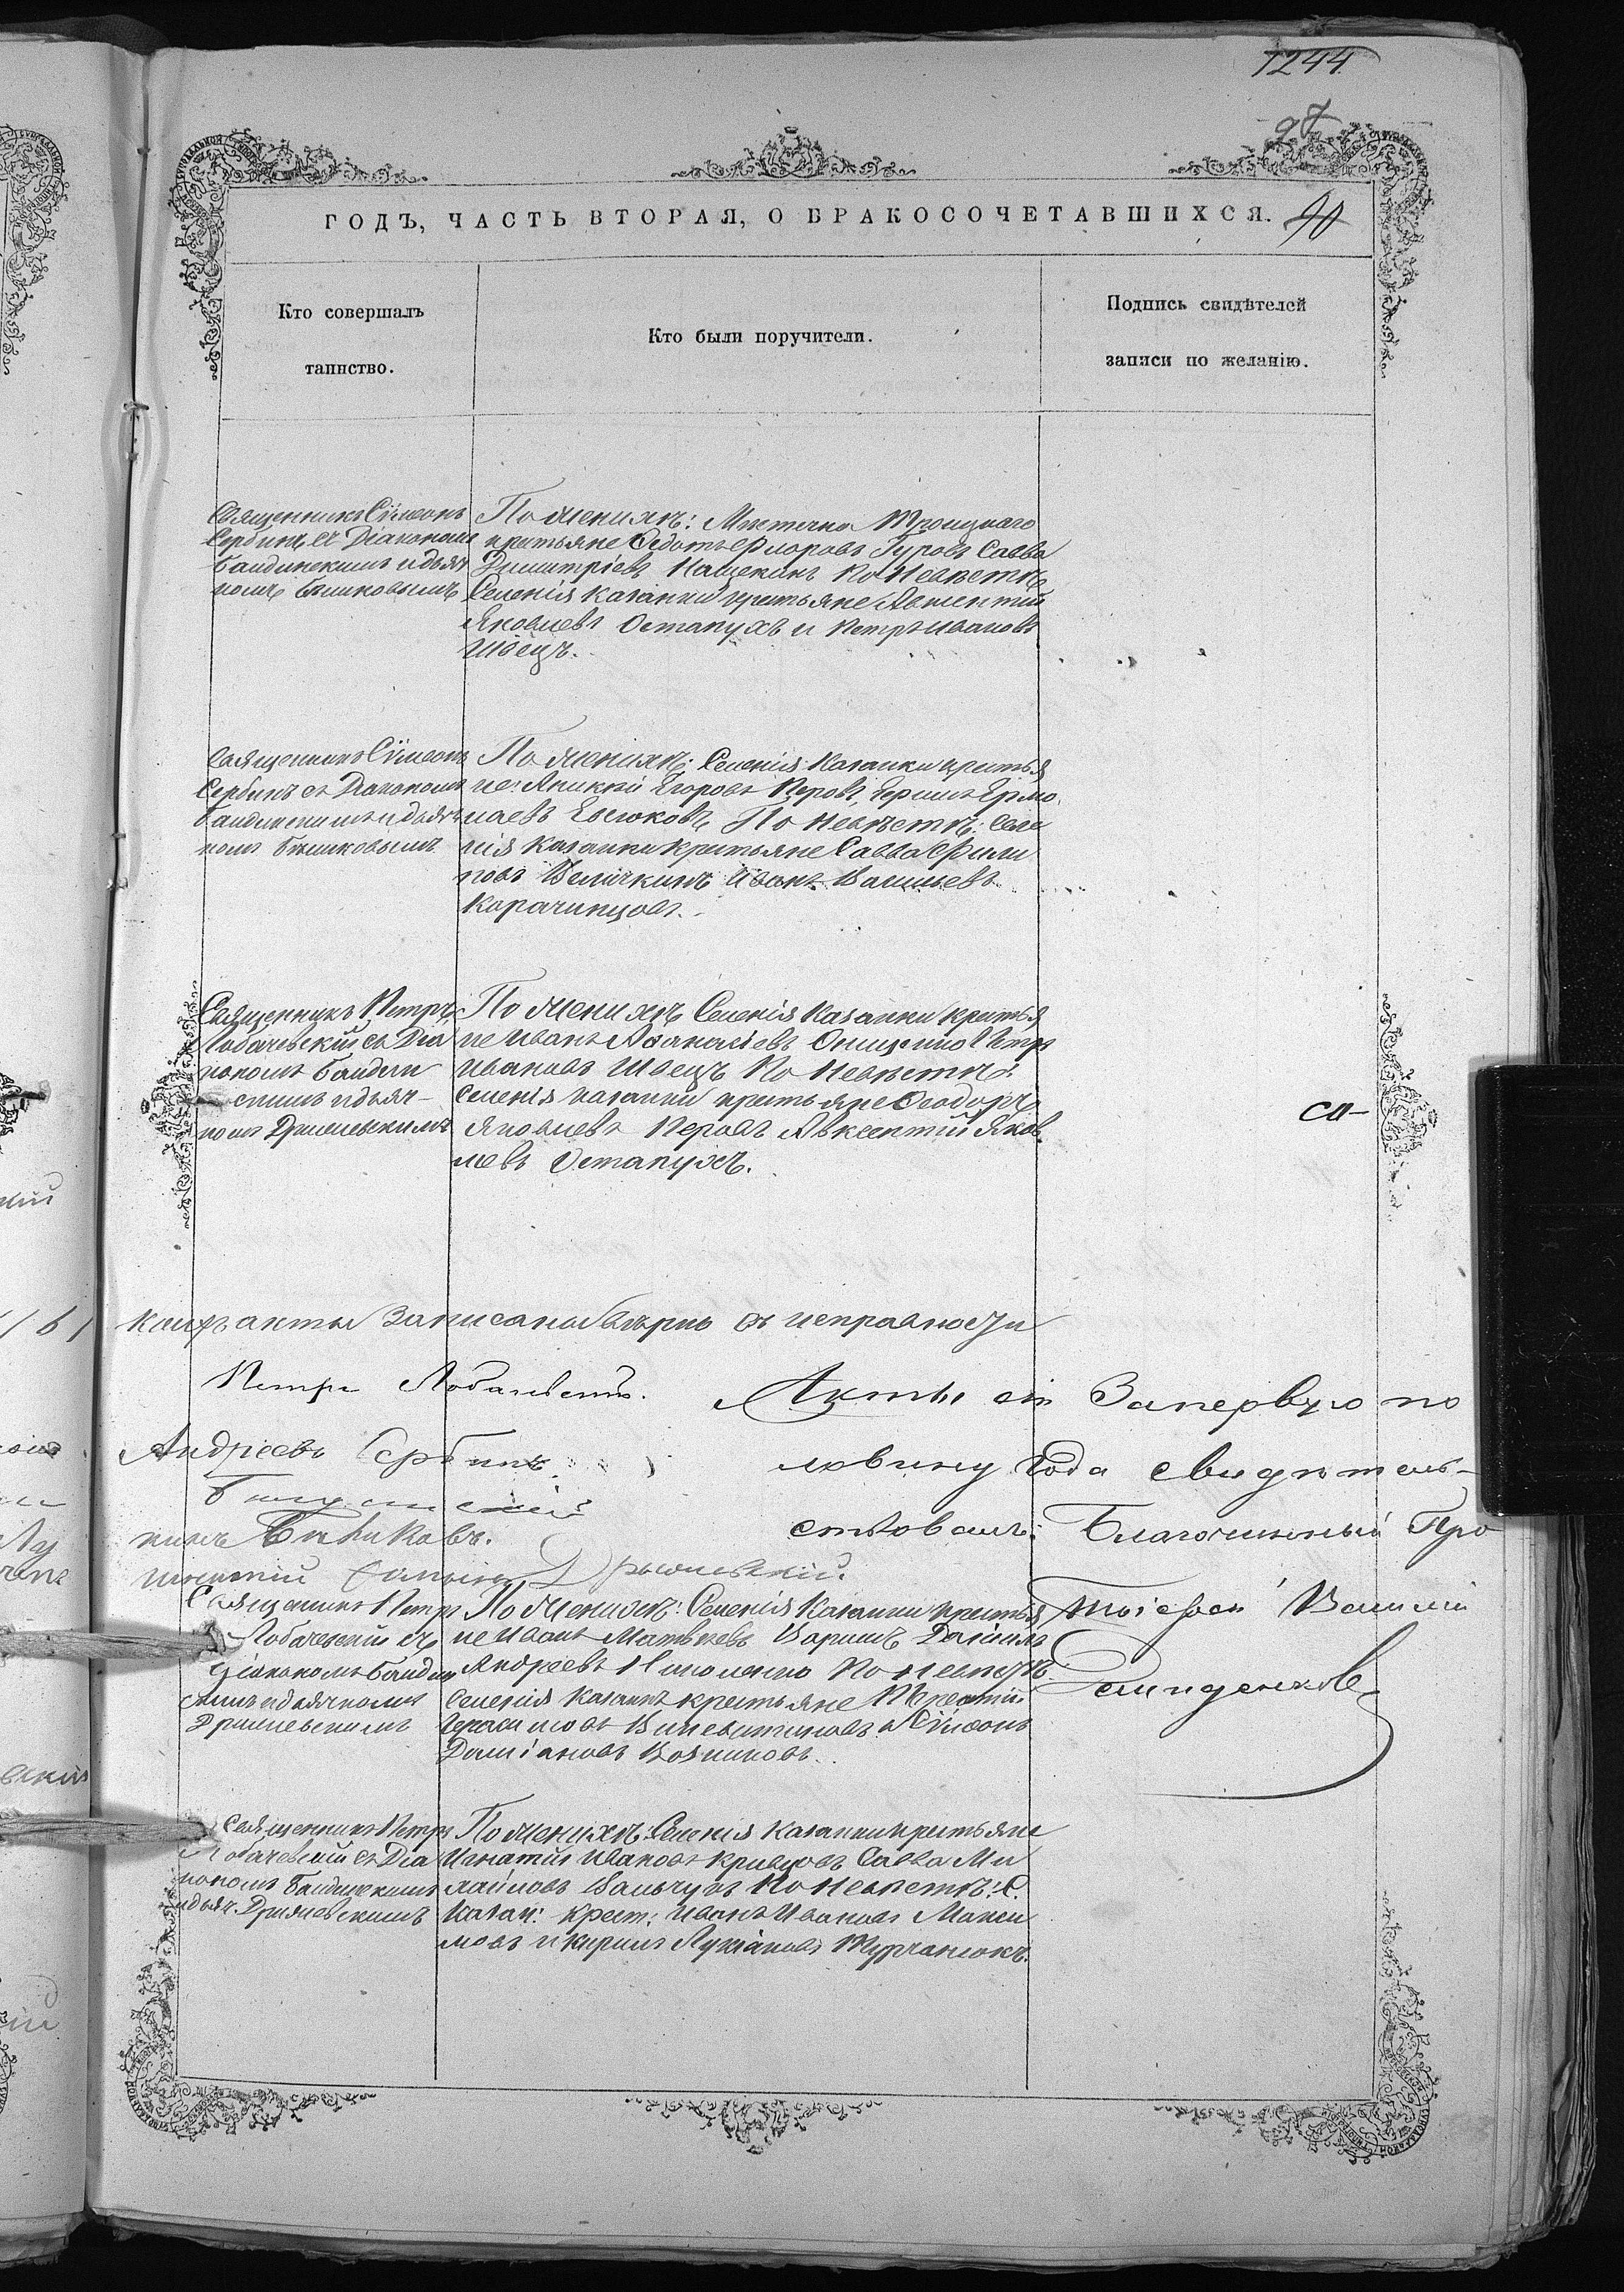 1244
97
ГОДЪ, ЧАСТЬ ВТОРАЯ, О БРАКОСОЧЕТАВШИХСЯ. 40
Кто совершалъ
таинство.
Кто были поручители.
Подпись свидѣтелей
записи по желанію.
Священникъ Сѵмеонъ
Сербинъ съ Діакономъ
Бандинскимъ и дьяч
комъ Бѣликовымъ
По женихѣ: Мѣстечка Троицкаго
крестьяне Федотъ Флоровъ Гуровъ Савва
Димитріевъ Нащекинъ По невѣстѣ
Селенія Казанки крестьяне Авксентій
Яковлевъ Остапухъ и Петръ Ивановъ
Швецъ.
Священникъ Сѵмеонъ
Сербинъ съ Діакономъ
Бандинскимъ и дьяч
комъ Бѣликовымъ
По женихѣ: Селенія Казанки крестья
не: Аникій Егоровъ Перовъ, Ермо
лаевъ По невѣстѣ: Селе
нія Казанки крестьяне Савва Фили
повъ Величкинъ Иванъ Васильевъ
Карачинцовъ.
Священникъ Петръ
Лобачевскій съ Діа
кономъ Бандин
скимъ и дьяч-
комъ
По женихѣ Селенія Казанки крестья
не Иванъ Аѳанасіевъ Онищенко Петръ
Ивановъ Швецъ По невѣстѣ:
Селенія Казанки крестьяне Ѳеодоръ
Яковлевъ Перовъ Авксентій Яков
левъ Остапухъ.
св-
акты записаны вѣрно въ исправности
Петръ Лобачевскій.
Андреевъ Сербинъ.
Бѣликовъ.
Акты сіи за первую по
ловину года свидѣтель-
ствовалъ: Благочинный Про
тоіерей Василій
Священникъ Петръ
Лобачевскій съ
Діакономъ Бандин
скимъ и дьячкомъ
По женихѣ: Селенія Казанки крестья
не Иванъ Матвѣевъ Даніилъ
Андреевъ По невѣстѣ
Селенія Казанки крестьяне
Герасимовъ и Сѵмеонъ
Даміановъ
Священникъ Петръ
Лобачевскій съ Діа
кономъ Бандинскимъ
и дьяч.
По женихѣ: Селенія Казанки крестьяне
Игнатій Ивановъ Кривцовъ Савва Ми
хайловъ По невѣстѣ: С.
Казан: крест: Иванъ Ивановъ Макси
мовъ и Кирилъ Лукіановъ